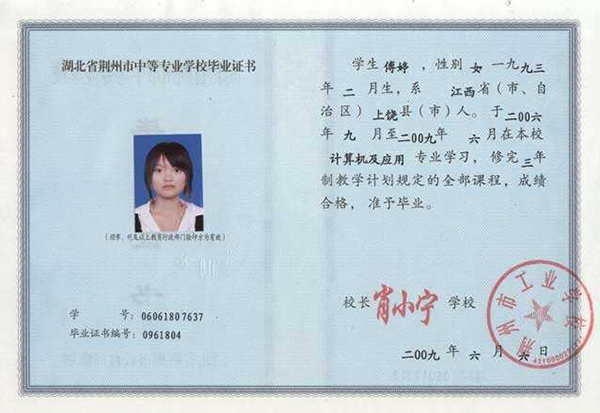 湖北省荆州市中等专业学校毕业证书
(经市、州及以上教育行政部门验印方为有效)
学 号:06061807637
毕业证书编号:0961804
学生 傅婷 ,性别 女 一九九三
年 二 月生,系 江西省(市、
自治区)上饶县(市)人。于二00六
年 九 月至二00九年 六月在本校
计算机及应用 专业学习,修完 三年
制教学计划规定的全部课程,成绩
合格,准予毕业。
校长 肖小宁 学校
荆州市工业学校
二00九 年 六 月 六 日